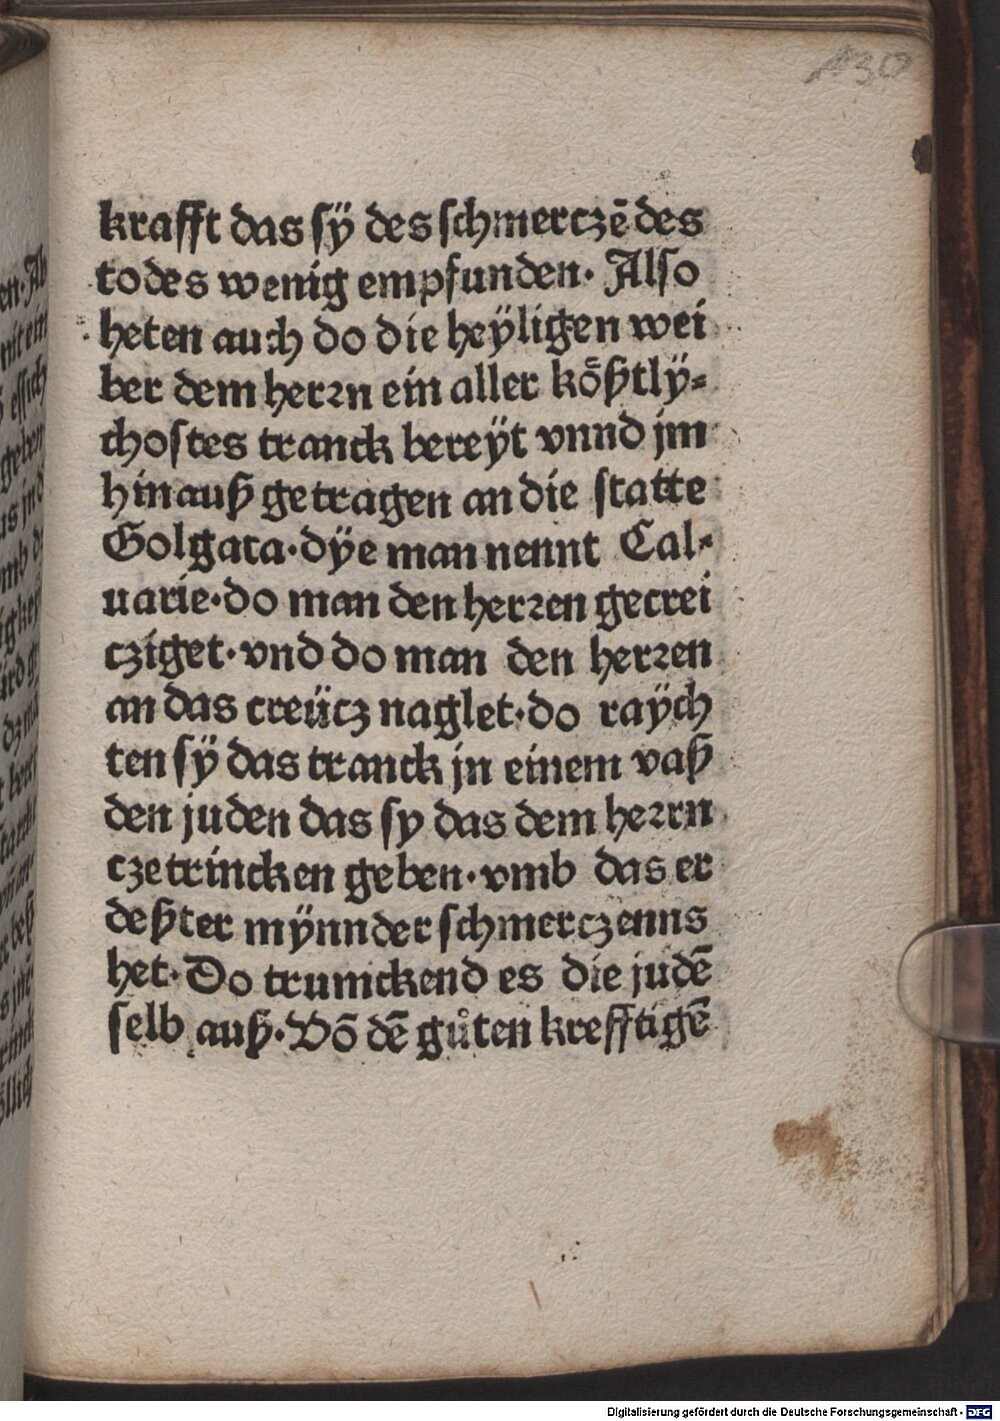 130
krafft das sÿ des schmerczē des
todes wenig empfunden· Also
heten auch do die heÿligen wei
ber dem herꝛn ein aller kößtlÿ⸗
chostes tranck bereÿt vnnd jm
hinauß getragen an die statte
Golgata·dÿe man nennt Cal⸗
uarie·do man den herꝛen gecrei
cziget·vnd do man den herꝛen
an das creücz naglet·do raÿch
ten sÿ das tranck jn einem vaß
den juden das sy das dem heꝛrn
cze trincken geben·vmb das er
deßter mÿnnder schmerczenns
het·Do trumckend es die judē
selb auß·Võ dē gůten krefftigē
Digitalisierung gefördert durch die Deutsche Forschungsgemeinschaft - DFG